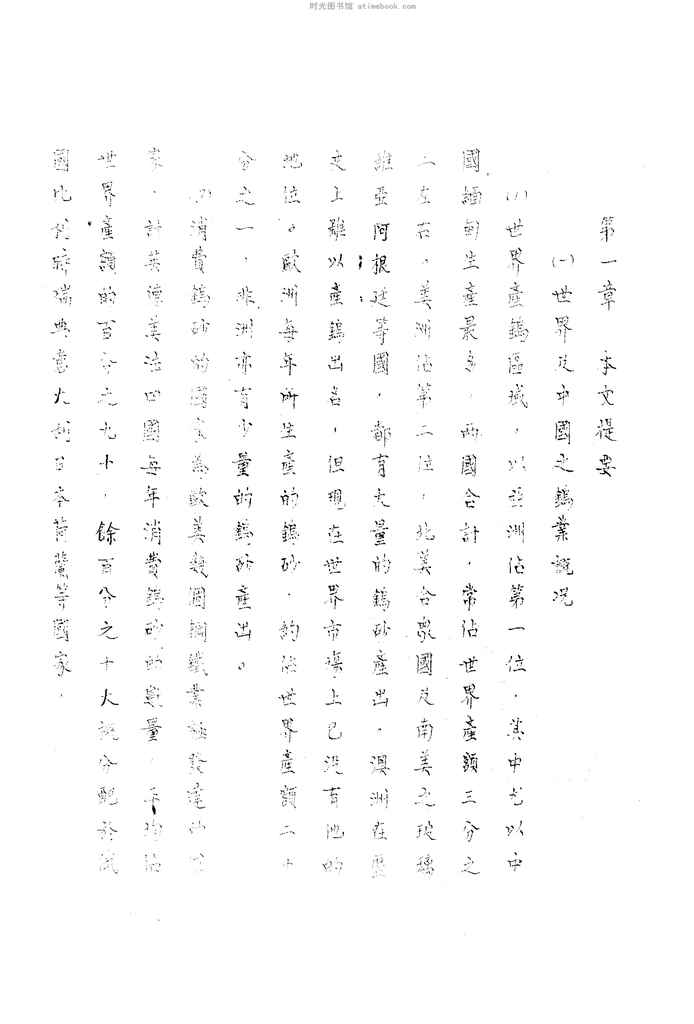 时光图书馆 atimebook.com
第一章 本文提要
(一)世界及中國之鎢業概况
(1)世界產鎢區域，以亞洲佔第一位，其中尤以中
國緬甸生產最多，兩國合計，常佔世界產額三分之
二左右。美洲佔第二位，北美合眾國及南美之玻璃
維亞阿根廷等國，都有大量的鎢砂產出。澳洲在歷
史上雖以產鎢出名，但現在世界市場上已没有他的
地位。歐洲每年所生產的鎢砂，約佔世界產額二十
分之一，非洲亦有少量的鎢砂產出。
(2)消費鎢砂的國家為歐美幾個鋼鐵業極發達的
家，計英德美法四國每年消費鎢砂的數量，平均佔
世界產額的百分之九十，餘百分之十大概分配於
國比利時瑞典意大利日本荷蘭等國家。